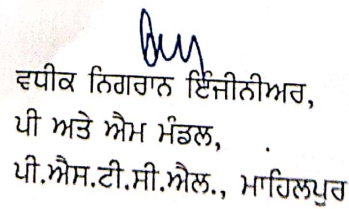 ਵਧੀਕ ਨਿਗਰਾਨ ਇੰਜੀਨੀਅਰ,
ਪੀ ਅਤੇ ਐਮ ਮੰਡਲ,
ਪੀ.ਐਸ.ਟੀ.ਸੀ.ਐਲ., ਮਾਹਿਲਪੁਰ